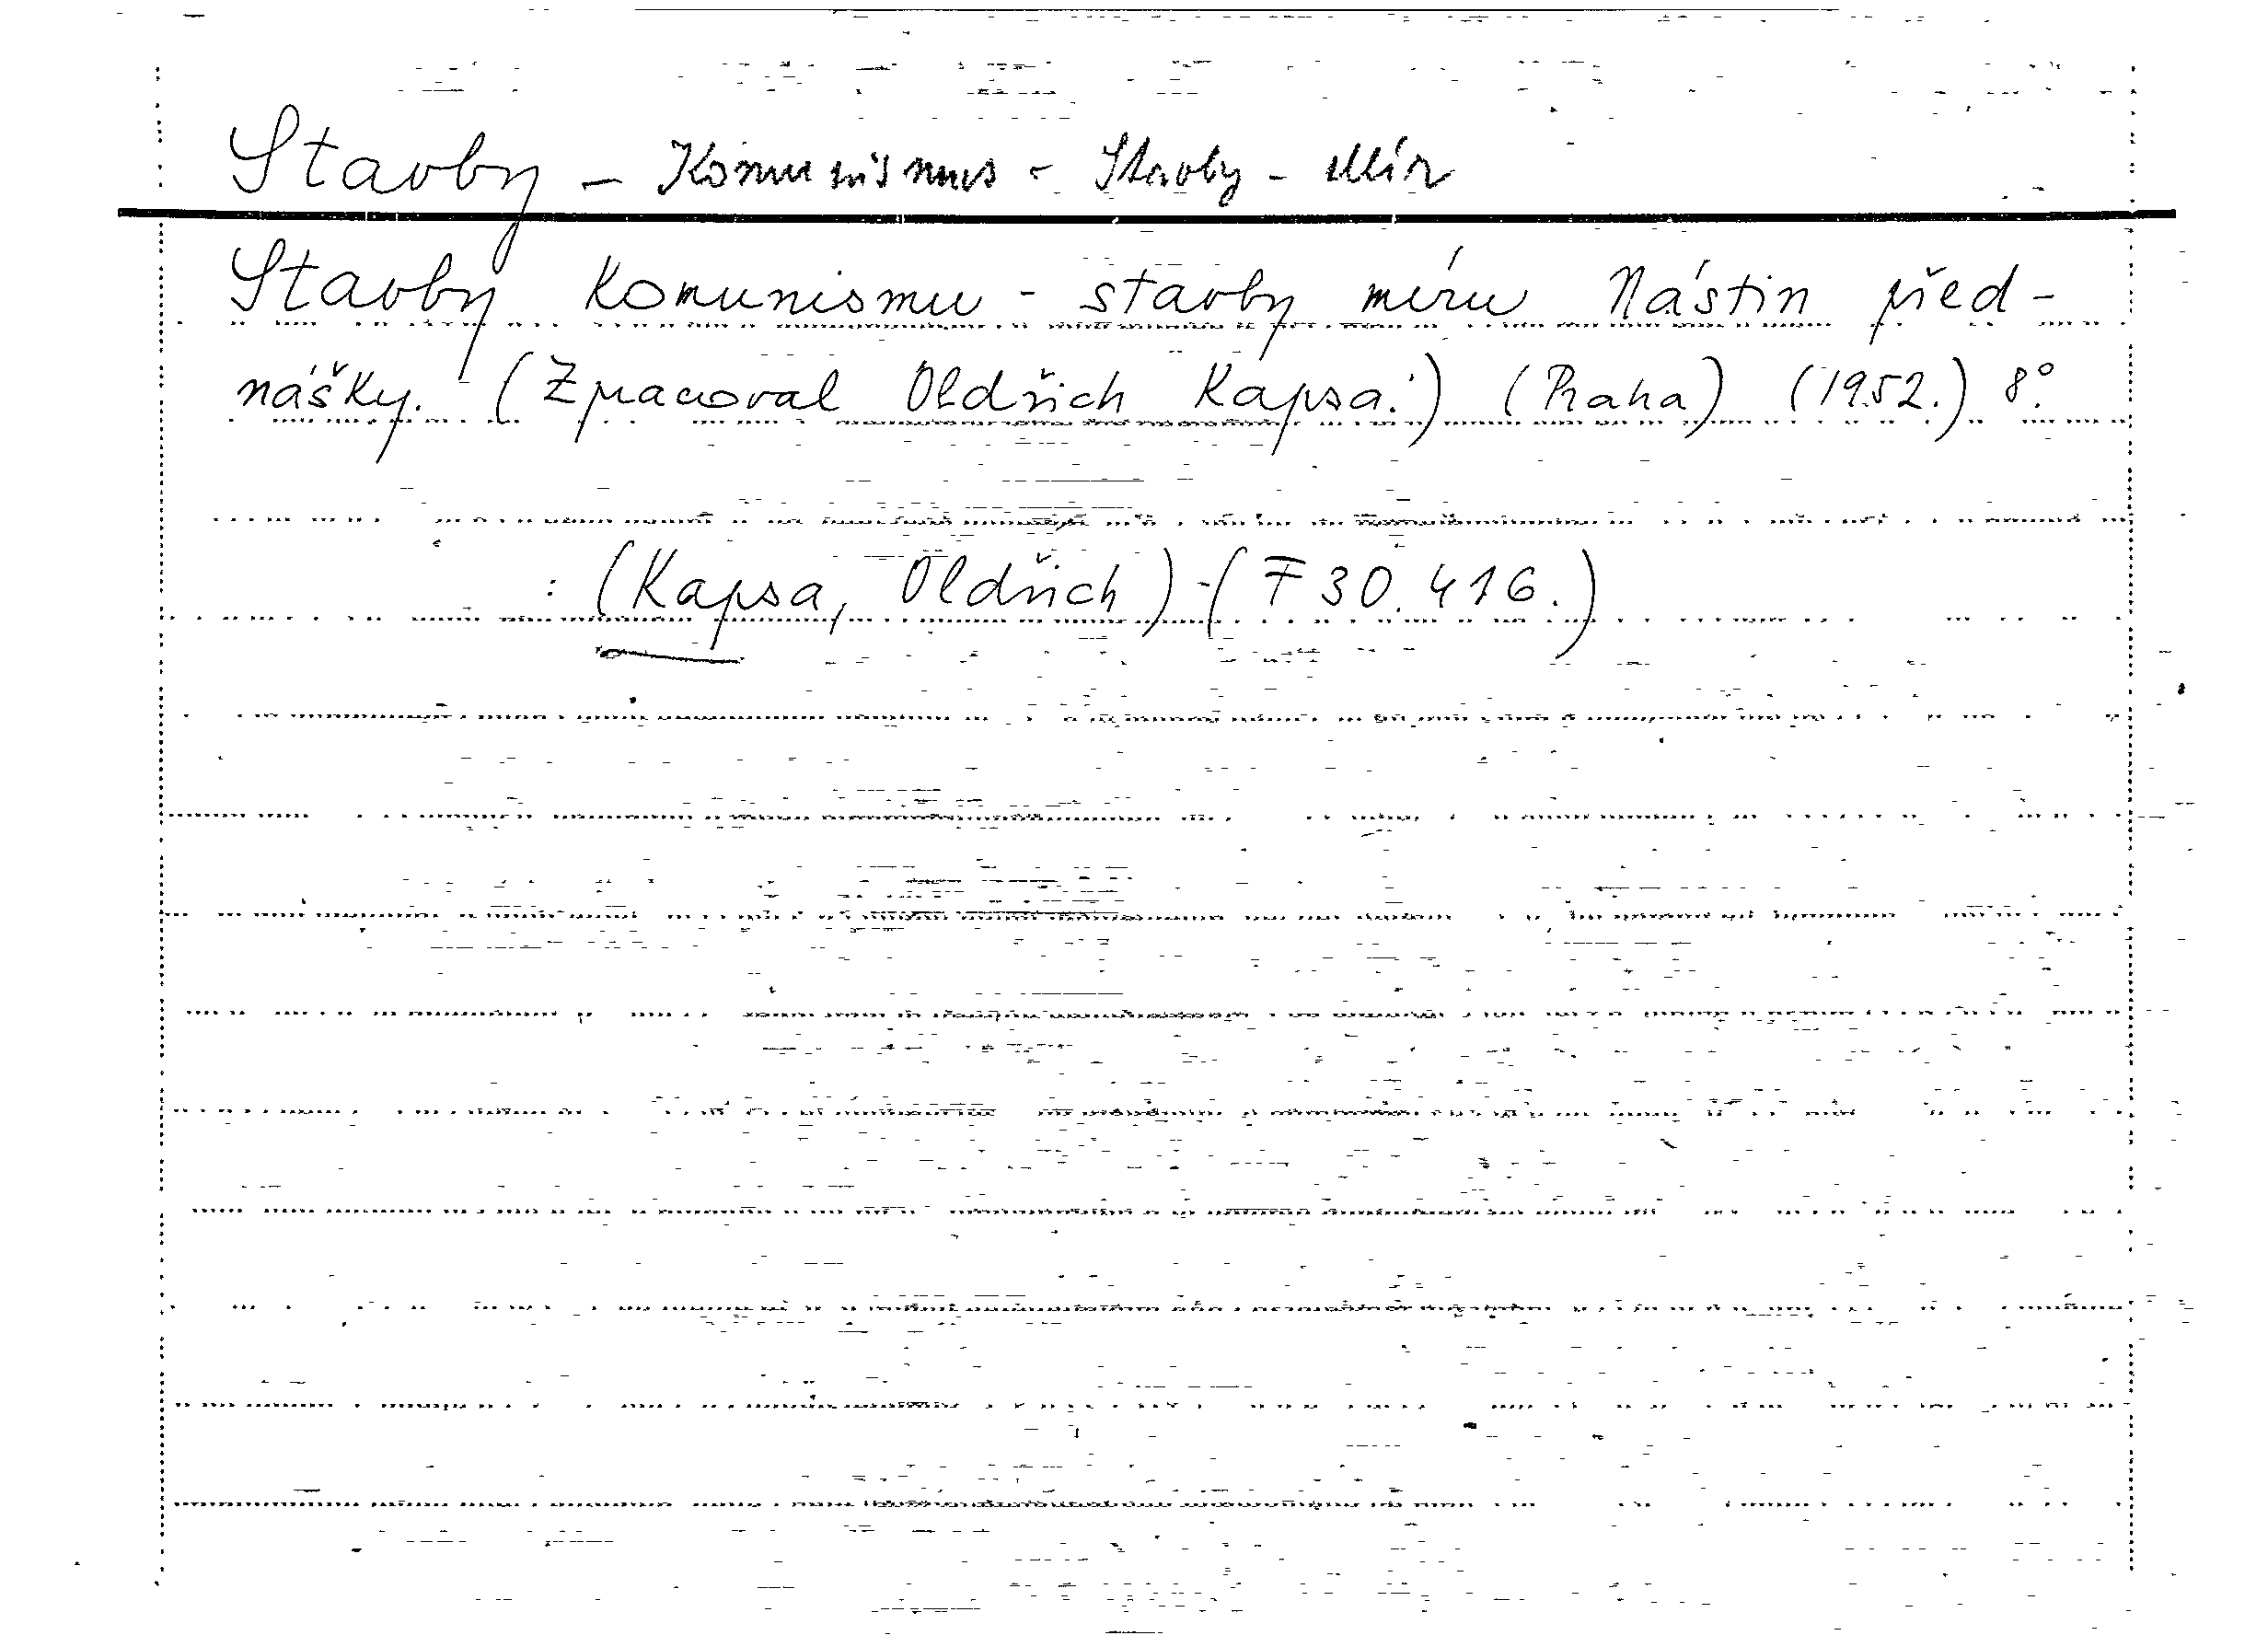 Stavby – Komunismus – Stavby – Mír
Stavby komunismu – stavby míru Nástin před-
nášky. (Zpracoval Oldřich Kapsa.) (Praha) (1952.) 8°.
: (Kapsa, Oldřich) – (F 30.416.)